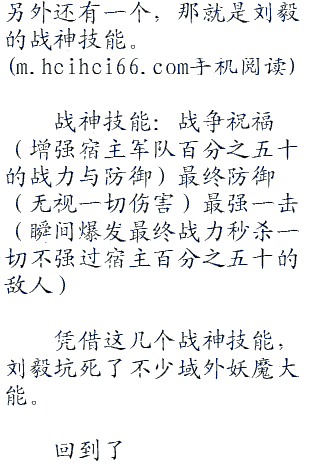 另外还有一个，那就是刘毅
的战神技能。
(m.hcihci66.com手机阅读)
战神技能：战争祝福
（增强宿主军队百分之五十
的战力与防御）最终防御
（无视一切伤害）最强一击
（瞬间爆发最终战力秒杀一
切不强过宿主百分之五十的
敌人）
凭借这几个战神技能，
刘毅坑死了不少域外妖魔大
能。
回到了